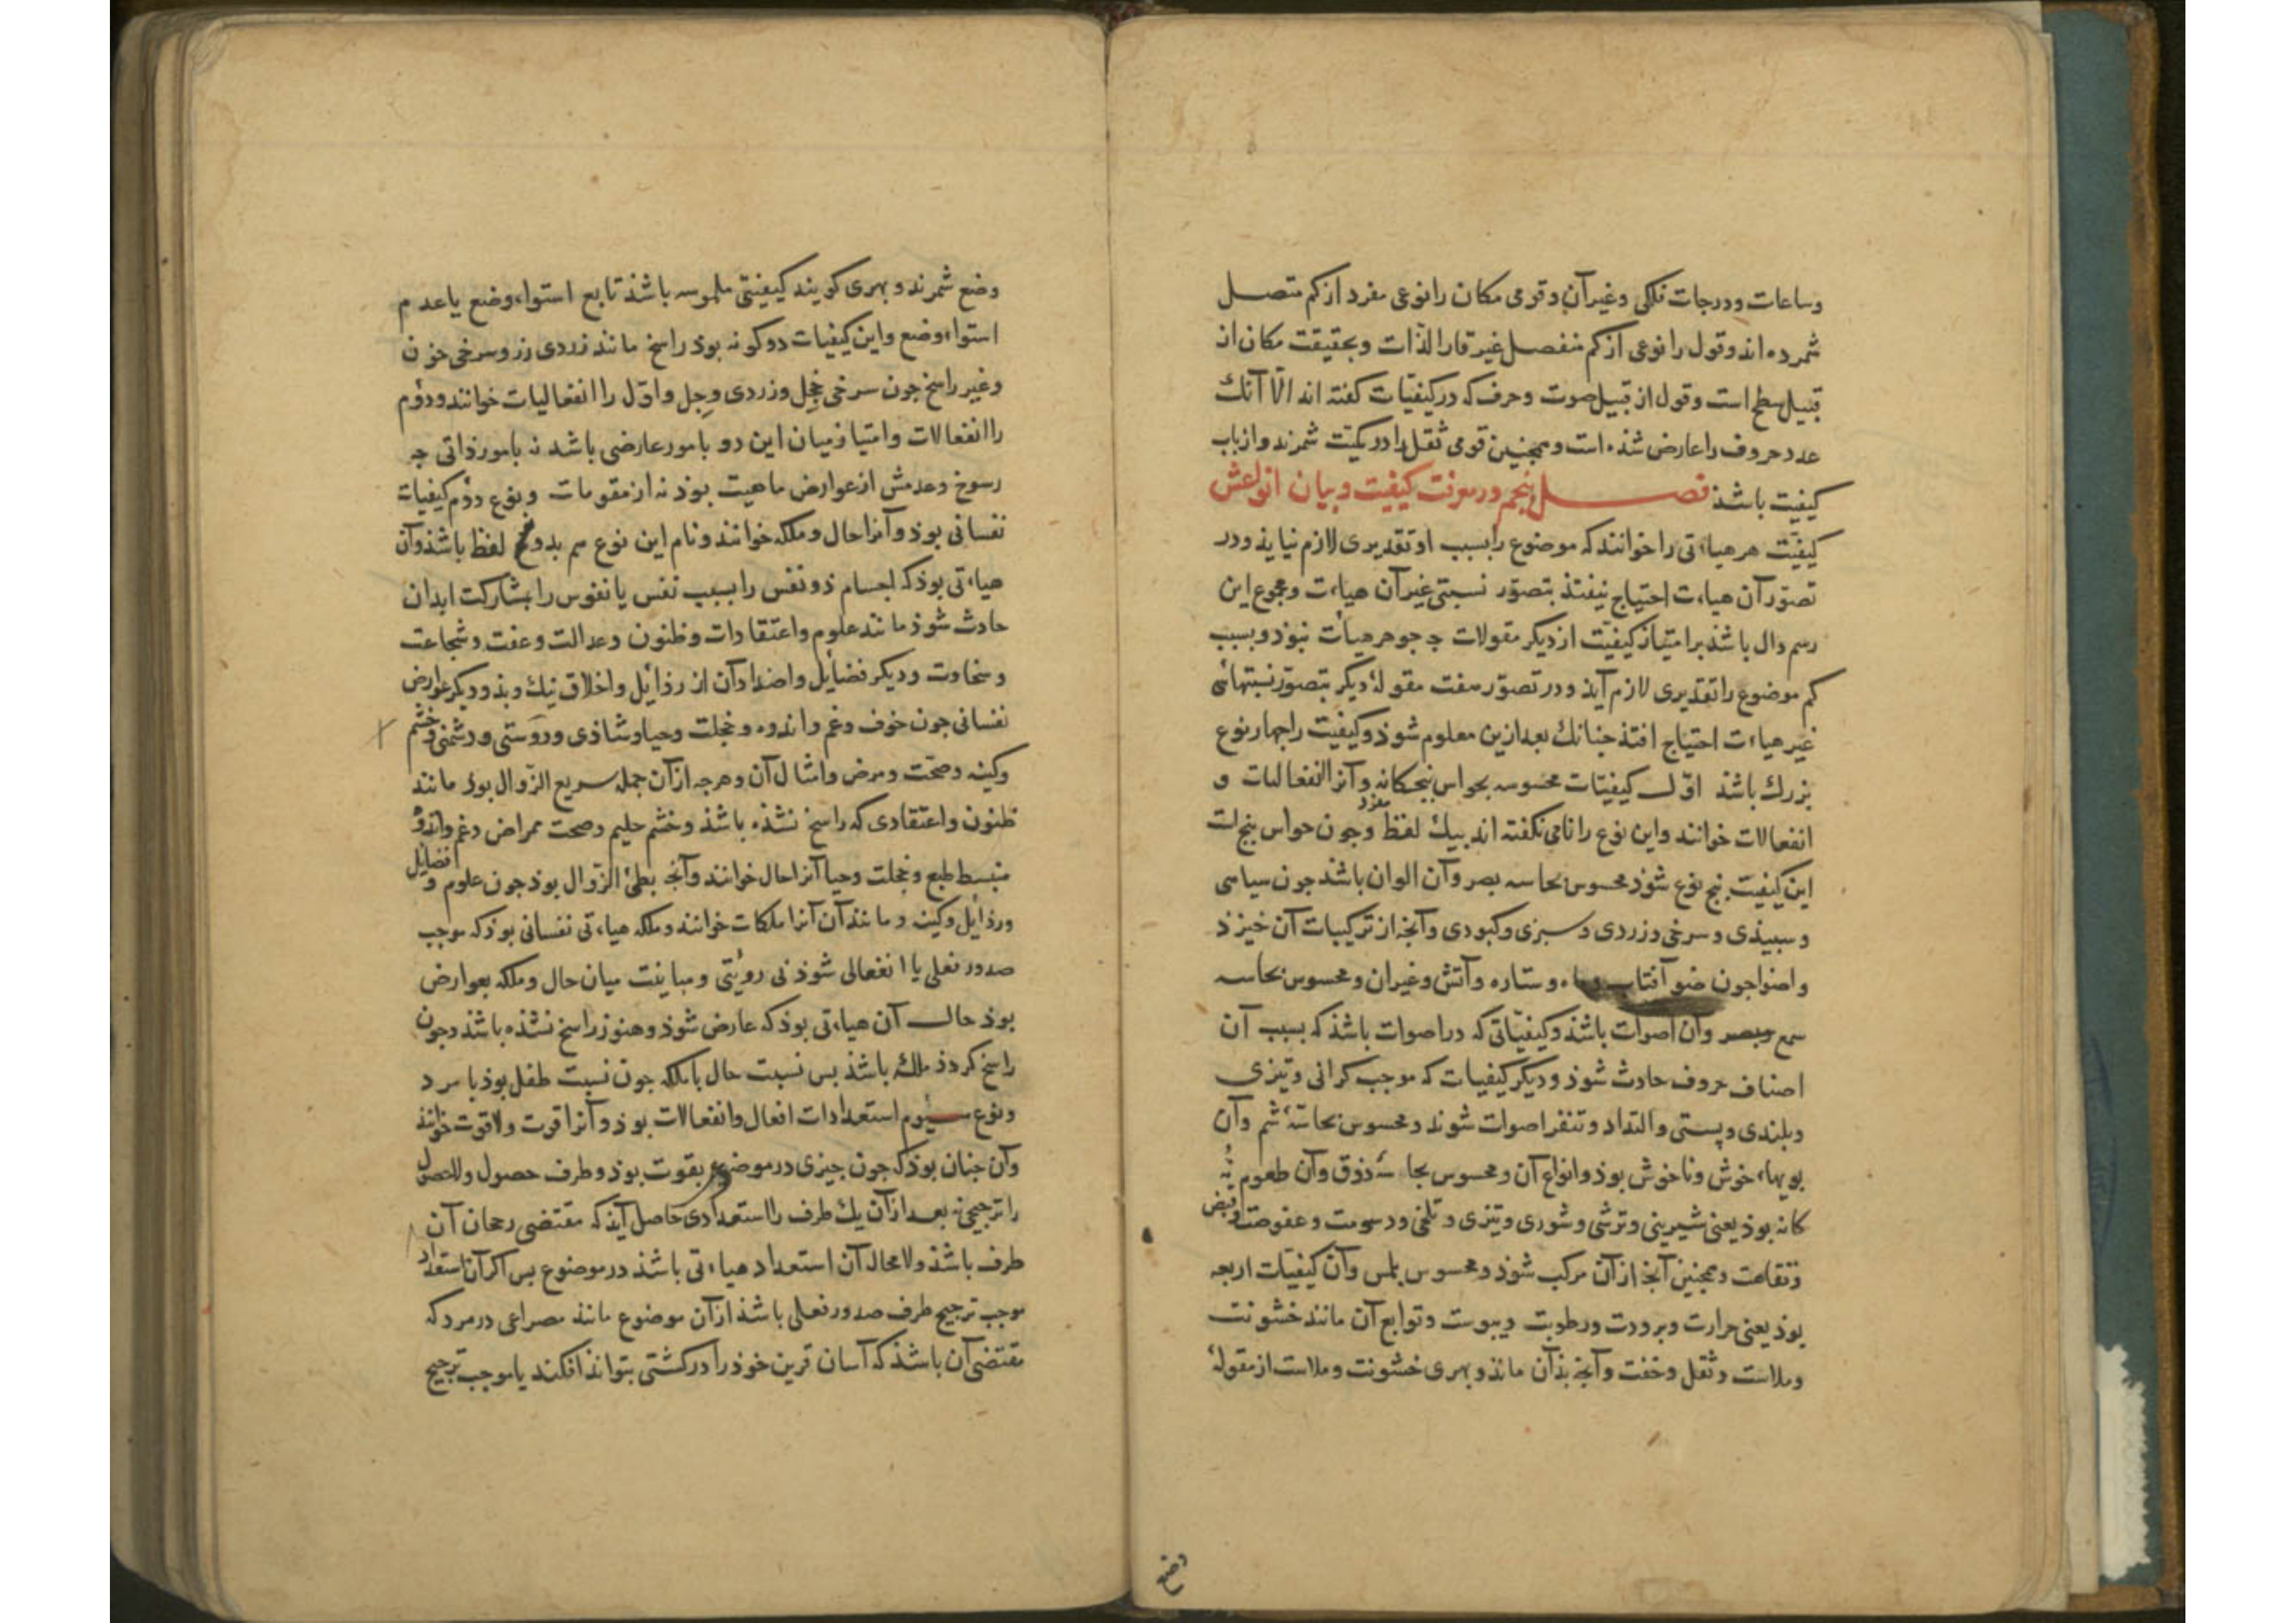 وساعات ودرجات فلکی وغیر آن وقومی مکان را نوعی مفرد از کم متصل
شمرده اند وقول را نوعی از کم منفصل غیر قار الذات وبحقیقت مکان از
قبیل سطح است وقول از قبیل صوت وحرف که در کیفیّات کفته اند الّا آنك
عدد حروف را عارض شذه است وهمچنین قومی ثقل را در کمیّت شمرند واز باب
کیفیّت باشذ فصل پنجم در معرفت کیفیت وبیان انواعش
کیفیّت هر هیاءتی را خوانند که موضوع را بسبب او تقدیری لازم نیایذ ودر
تصوّر آن هیاءت احتیاج نیفتذ بتصوّر نسبتی غیر آن هیاءت ومجموع این
رسم دال باشذ بر امتیاز کیفیّت از دیکر مقولات چه جوهر هیأت نبوذ وبسبب
کم موضوع را تقدیری لازم آیذ ودر تصوّر هفت مقولهٔ دیکر بتصوّر نسبتهائی
غیر هیاءت احتیاج افتذ چنانك بعد ازین معلوم شوذ وکیفیّت را چهار نوع
بزرك باشذ اوّل کیفیّات محسوسه بحواس پنجکانه وآنرا انفعالیات و
انفعالات خوانند واین نوع را نامی نکفته اند بیك لفظ مفرد وچون حواس پنج است
این کیفیت پنج نوع شوذ محسوس بحاسه بصر وآن الوان باشذ چون سیاهی
وسپیذی وسرخی وزردی وسبزی وکبودی وآنچه از ترکیبات آن خیزذ
واضوا چون ضو آفتاب وماه وستاره وآتش وغیران ومحسوس بحاسه
سمع وبصر وان اصوات باشذ وکیفیّاتی که در اصوات باشذ که بسبب آن
اصناف حروف حادث شوذ ودیکر کیفیات که موجب کرانی وتیزی
وبلندی وپستی والتذاد وتنفر اصوات شوند ومحسوس بحاسّهٔ شم وآن
بویهاء خوش وناخوش بوذ وانواع آن ومحسوس بحاسهٔ ذوق وآن طعوم نه
کانه بوذ یعنی شیرینی وترشی وشوری وتیزی وتلخی ودسومت وعفوصت وقبض
وتفاهت وهمچنین آنچه از آن مرکب شوذ ومحسوس بلمس وآن کیفیّات اربعه
بوذ یعنی حرارت وبرودت ورطوبت ویبوست وتوابع آن مانند خشونت
وملاست وثقل وخفت وآنچه بذآن ماند وبهری خشونت وملاست از مقولهٔ
وضع
وضع شمرند وبهری کویند کیفیّتی ملموسه باشذ تابع استواء وضع یا عدم
استواء وضع واین کیفیات دو کونه بوذ راسخ مانند زردی زر وسرخی خون
وغیر راسخ چون سرخی خجل وزردی وجل واوّل را انفعالیات خوانند ودوّم
را انفعالات وامتیاز میان این دو بامور عارضی باشد نه بامور ذاتی چه
رسوخ وعدمش از عوارض ماهیت بوذ نه از مقومات ونوع دوّم کیفیات
نفسانی بوذ وآنرا حال وملکه خوانند ونام این نوع هم بدو لفظ باشذ وآن
هیاءتی بوذ که اجسام ذو نفس را بسبب نفس یا نفوس را بمشارکت ابدان
حادث شوذ مانند علوم واعتقادات وظنون وعدالت وعفت وشجاعت
وسخاوت ودیکر فضایل واضداد آن از رذائل واخلاق نیك وبذ ودیکر عوارض
نفسانی چون خوف وغم واندوه وخجلت وحیا وشاذی ودوستی ودشمنی وخشم
وکینه وصحّت ومرض وامثال آن وهرچه از آن جمله سریع الزّوال بوذ مانند
ظنون واعتقادی که راسخ نشذه باشذ وخشم حلیم وصحت ممراض وغم واندوه
منبسط طبع وخجلت وحیا آنرا حال خوانند وآنچه بطئ الزّوال بوذ چون علوم وفضایل
ورذایل وکینه ومانند آن آنرا ملکات خوانند وملکه هیاءتی نفسانی بوذ که موجب
صدور فعلی یا انفعالی شوذ بی رویّتی ومباینت میان حال وملکه بعوارض
بوذ حال آن هیاءتی بوذ که عارض شوذ وهنوز راسخ نشذه باشذ وچون
راسخ کردذ ملکه باشذ پس نسبت حال با ملکه چون نسبت طفل بوذ با مرد
ونوع سیوم استعدادات افعال وانفعالات بوذ وآنرا قوت ولا قوت خوانند
وآن چنان بوذ که چون چیزی در موضوع بقوت بوذ وطرف حصول ولا حصول
را ترجیحی نه بعد از آن یك طرف را استعدادی حاصل آیذ که مقتضی رجحان آن
طرف باشذ ولا محاله آن استعداد هیاءتی باشذ در موضوع پس اکر آن استعداد
موجب ترجیح طرف صدور فعلی باشذ از آن موضوع مانند مصراعی در مرد که
مقتضی آن باشذ که آسان قرین خوذ را در کشتی بتواند افکند یا موجب ترجیح